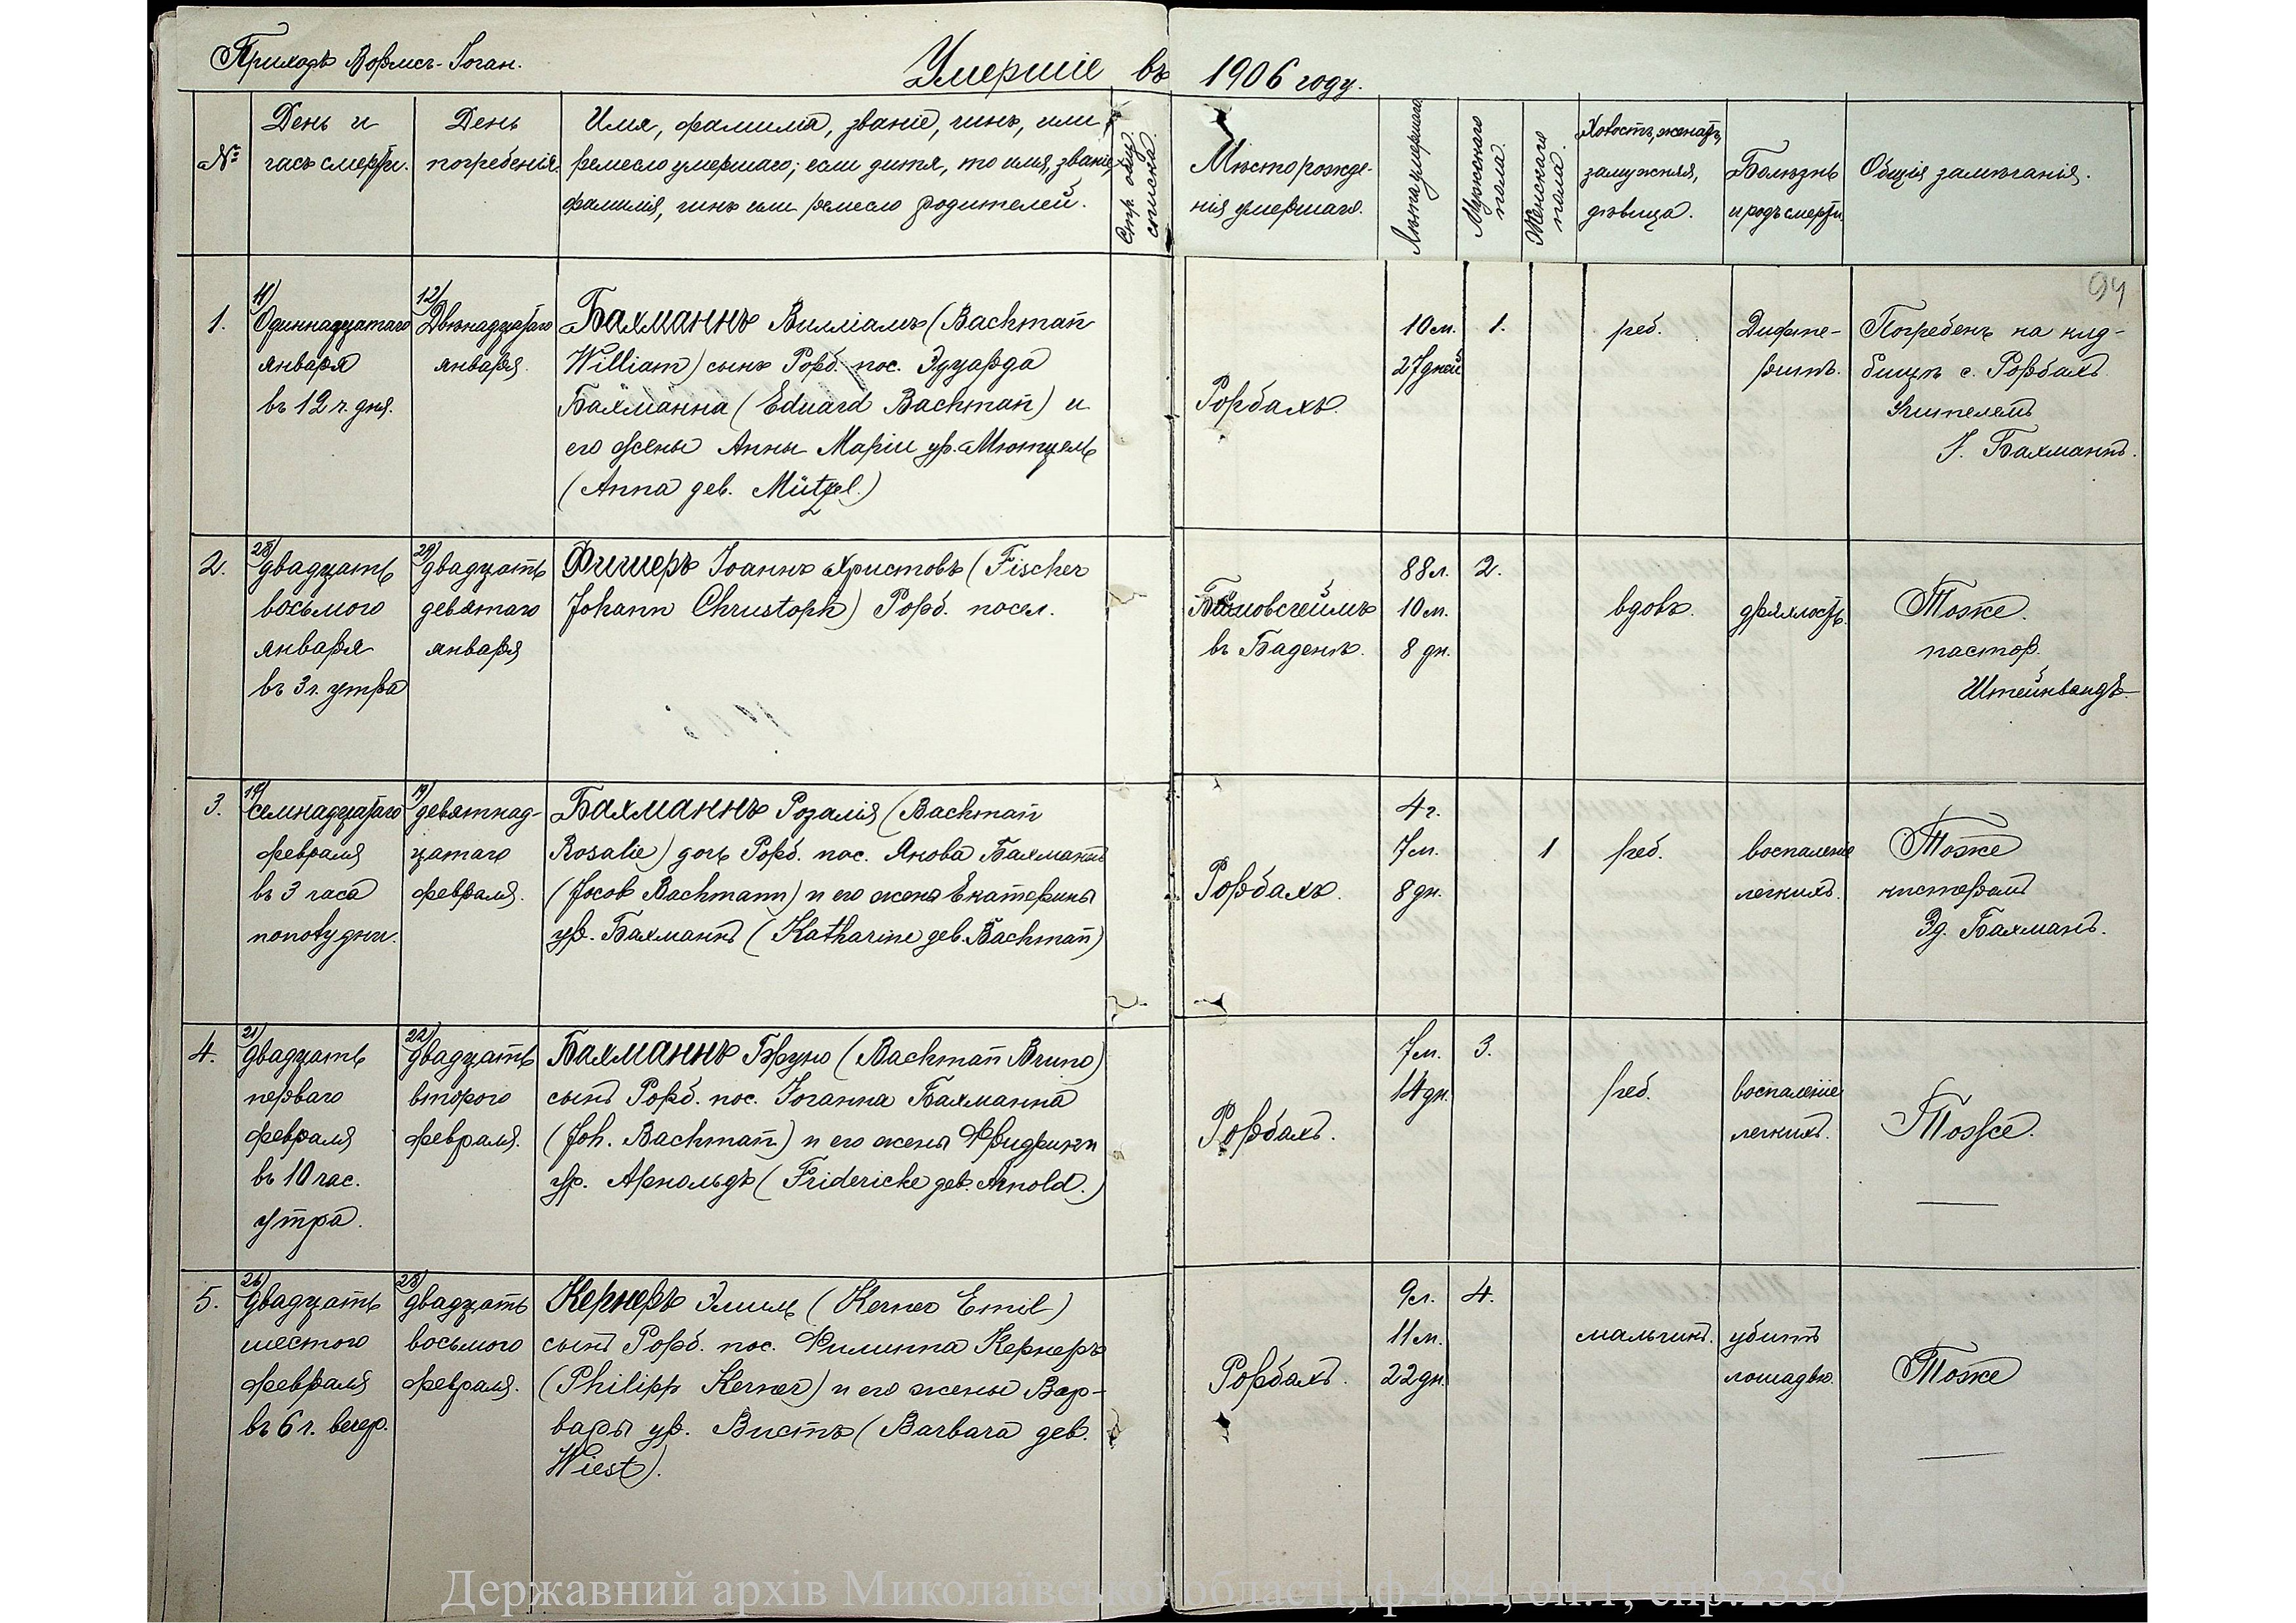 Приходъ Вормсъ-Іоган.
Умершіе въ 1906 году.
№
День и
часъ смерти.
День
погребенія.
Имя, фамилія, званіе, чинъ, или
ремесло умершаго; если дитя, то имя, званіе,
фамилія, чинъ или ремесло родителей.
Стр. общ.
списка.
Мѣсто рожде-
нія умершаго.
Лѣта умершаго
Мужскаго
пола.
Женскаго
пола.
Холостъ, женатъ,
замужняя,
дѣвица.
Болѣзнь
и родъ смерти.
Общія замѣчанія.
94
1.
11)
Одиннадцатаго
января
въ 12 ч. дня.
12)
Двѣнадцатаго
января.
Бахманнъ Вилліамъ (Bachmañ
William) сынъ Рорб. пос. Эдуарда
Бахманна (Eduard Bachmañ) и
его жены Анны Маріи ур. Мютцель
(Anna дев. Mützel.)
Рорбахъ.
10 м.
27 дней
1.
реб.
Дифте-
ритъ.
Погребенъ на клд-
бищѣ с. Рорбахъ
Учителемъ
І. Бахманнъ.
2.
28)
двадцать
восьмого
января
въ 3 ч. утра
29)
двадцать
девятаго
января
Фишеръ Іоаннъ Христовъ (Fischer
Johann Christoph) Рорб. посел.
въ Баденѣ.
88 л.
10 м.
8 дн.
2.
вдовъ.
дряхлость.
Тоже.
пастор.
Штейнвандъ.
3.
семнадцатаго
февраля
въ 3 часа
пополудни.
19)
девятнад-
цатаго
февраля.
Бахманнъ Розалія (Bachmañ
Rosalie) дочь Рорб. пос. Якова Бахманнъ
(Jacob Bachmann) и его жены Екатерины
ур. Бахманнъ (Katharine дев. Bachmañ)
Рорбахъ.
4 г.
7 м.
8 дн.
1
реб.
воспаленіе
легкихъ.
Тоже
кистеромъ
Эд. Бахманъ.
4.
21)
двадцать
перваго
февраля
въ 10 час.
утра.
22)
двадцать
второго
февраля.
Бахманнъ Бруно (Bachmañ Bruno)
сынъ Рорб. пос. Іоганна Бахманна
(Joh. Bachmañ) и его жены Фридрики
ур. Арнольдъ (Fridericke дев. Arnold.)
Рорбахъ.
7 м.
14 дн.
3.
реб.
воспаленіе
легкихъ.
Тоже.
5.
26)
двадцать
шестого
февраля
въ 6 ч. вечер.
28)
двадцать
восьмого
февраля.
Кернеръ Эмиль (Kerner Emil)
сынъ Рорб. пос. Филиппа Кернеръ
(Philipp Kerner) и его жены Вар-
вары ур. Вистъ (Barbara дев.
Wiest).
Рорбахъ.
9 л.
11 м.
22 дн.
4.
мальчикъ.
убитъ
лошадью.
Тоже
Державний архів Миколаївської області, ф.484, оп.1, спр.2359